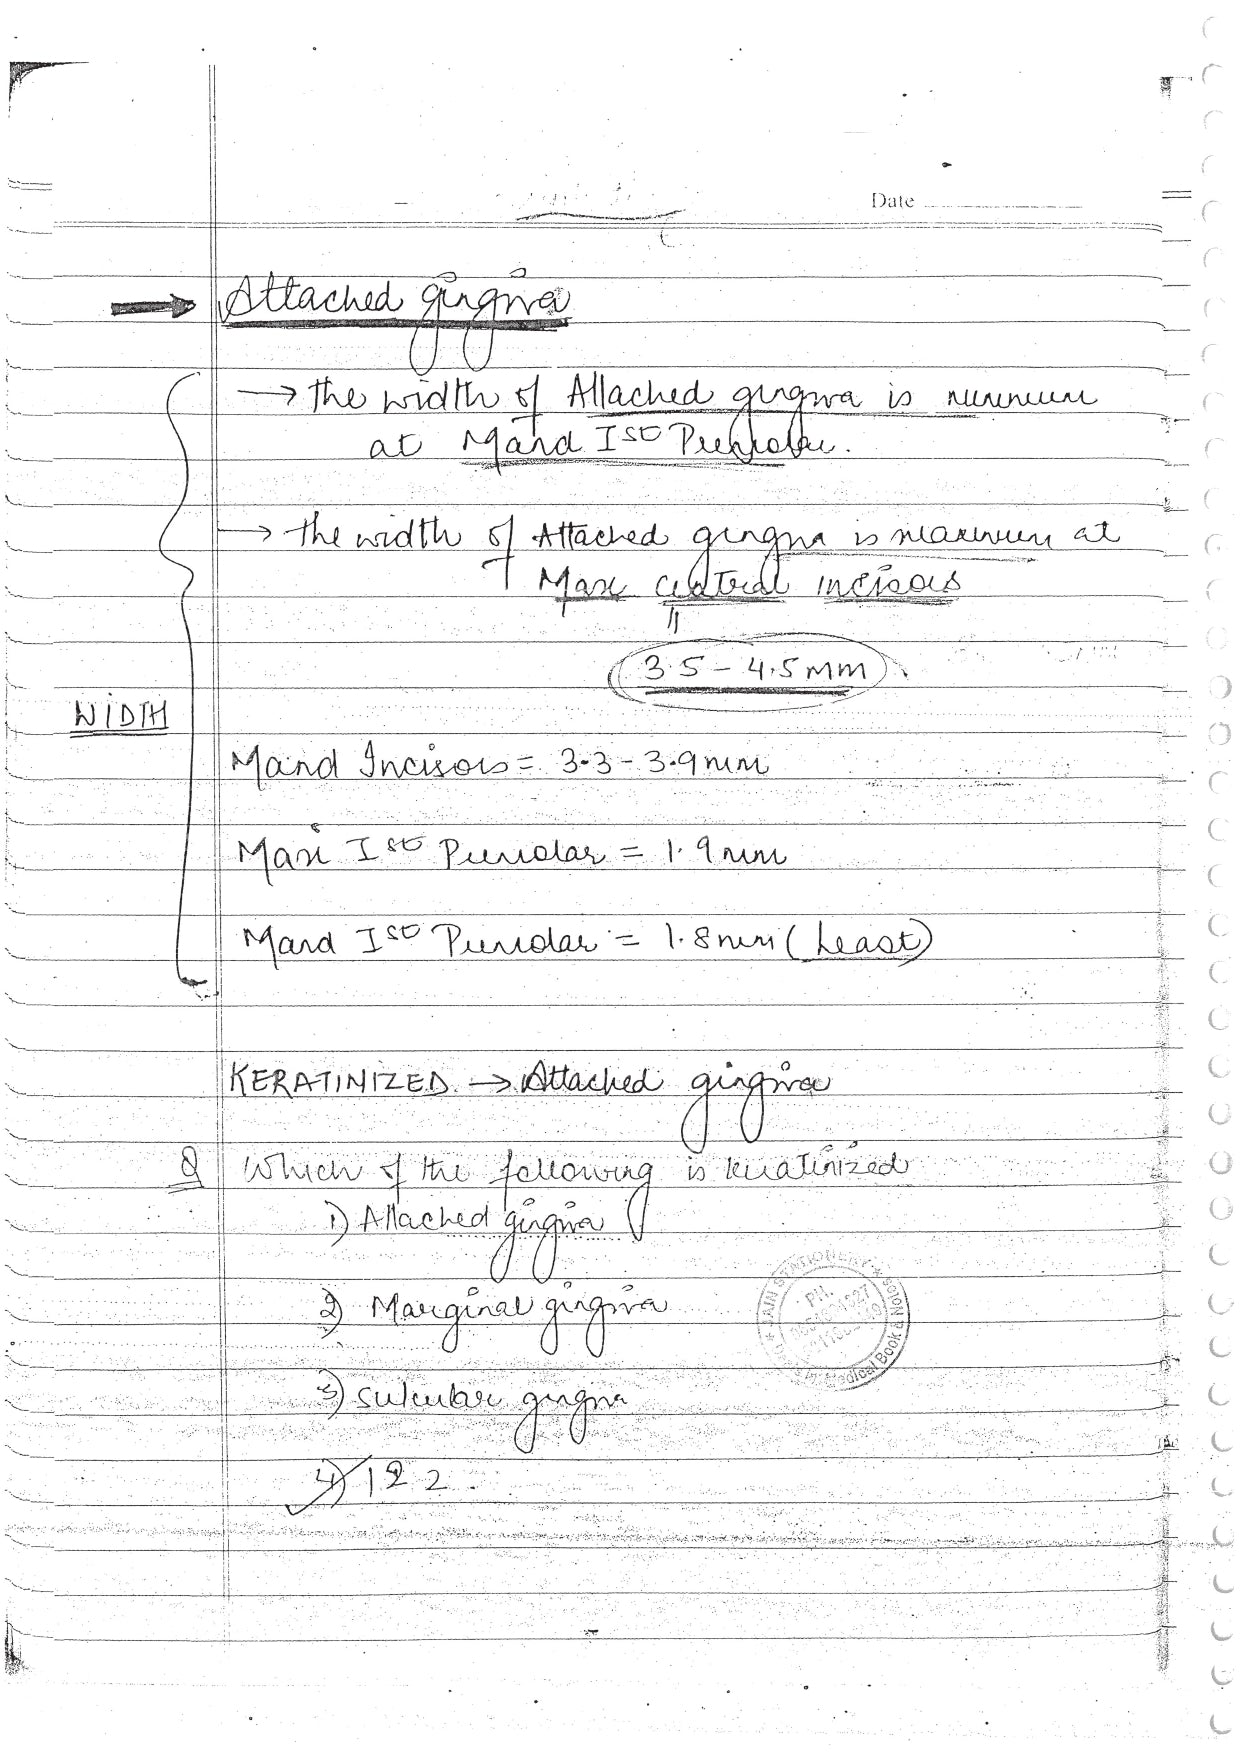 Date
→ Attached gingiva
→ the width of Attached gingiva is minimum
at Mand Ist Premolar.
→ the width of Attached gingiva is maximum at
Maxi central incisors
3.5 - 4.5 mm
WIDTH
Mand Incisors = 3.3 - 3.9 mm
Maxi Ist Premolar = 1.9 mm
Mand Ist Premolar = 1.8 mm (Least)
KERATINIZED → Attached gingiva
Q Which of the following is keratinized
1) Attached gingiva
2) Marginal gingiva
3) sulcular gingiva
4) 1 & 2
JAIN STATIONERY ★
PH.
Medical Book & Notes